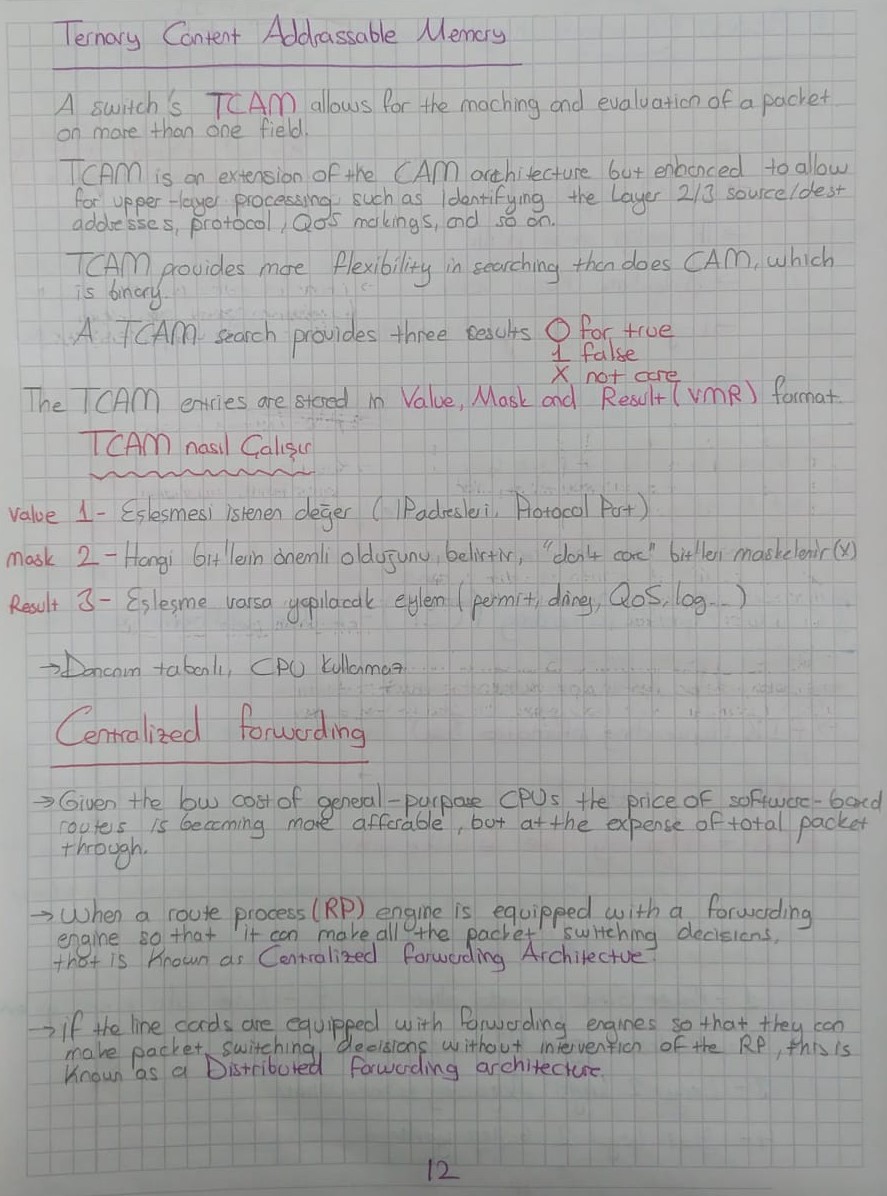 Ternary Content Addrassable Memory
A switch's TCAM allows for the maching and evaluation of a packet
on more than one field.
TCAM is an extension of the CAM architecture but enhanced to allow
for upper-layer processing such as identifying the Layer 2/3 source/dest
addresses, protocol, QoS makings, and so on.
TCAM provides more flexibility in searching than does CAM, which
is binary.
A TCAM search provides three results 0 for true
1 false
X not care
The TCAM entries are stored in Value, Mask and Result (VMR) format.
TCAM nasıl Çalışır
Value 1- Eşleşmesi istenen değer (IPadresleri, Protocol Port)
mask 2- Hangi bit'lerin önemli olduğunu belirtir, "don't care" bit'leri maskelenir (x)
Result 3- Eşleşme varsa yapılacak eylem (permit, diney, QoS, log...)
→Donanım tabanlı, CPU kullanmaz
Centralized forwarding
→Given the low cost of general-purpose CPUs the price of software-baed
routers is becoming more afforable, but at the expense of total packet
through.
→When a route process (RP) engine is equipped with a forwarding
engine so that it can make all the packet switching decisions,
that is Known as Centralized forwarding Architectue.
→if the line cards are equipped with forwarding engines so that they can
make packet switching decisions without intervention of the RP, this is
Known as a Distributed forwarding architecture.
12